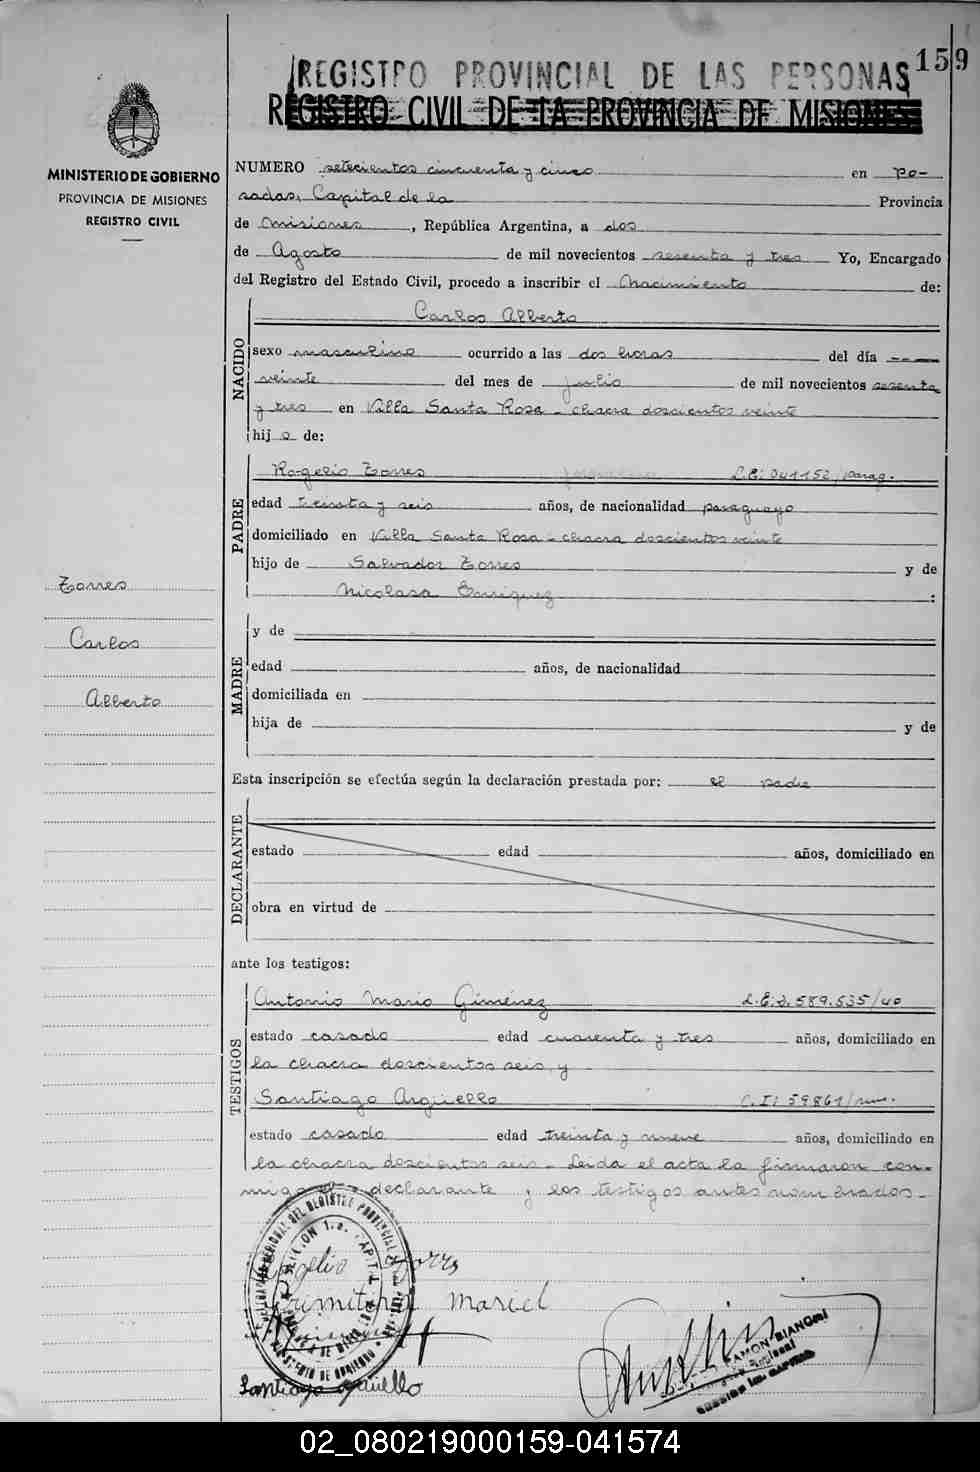 159
REGISTRO PROVINCIAL DE LAS PERSONAS
REGISTRO CIVIL DE LA PROVINCIA DE MISIONES
MINISTERIO DE GOBIERNO
PROVINCIA DE MISIONES
REGISTRO CIVIL
NUMERO setecientos cincuenta y cinco en Po-
sadas, Capital de la Provincia
de Misiones, República Argentina, a dos
de Agosto de mil novecientos sesenta y tres Yo, Encargado
del Registro del Estado Civil, procedo a inscribir el Nacimiento de:
NACIDO
Carlos Alberto
sexo masculino ocurrido a las dos horas del día
veinte del mes de julio de mil novecientos sesenta
y tres en Villa Santa Rosa - chacra doscientos veinte
hijo de:
PADRE
Rogelio Torres L.E: 041152/parag.
edad treinta y seis años, de nacionalidad paraguayo
domiciliado en Villa Santa Rosa - chacra doscientos veinte
hijo de Salvador Torres y de
Nicolasa Enriquez :
Torres
Carlos
Alberto
MADRE
y de
edad años, de nacionalidad
domiciliada en
hija de y de
Esta inscripción se efectúa según la declaración prestada por: el padre
DECLARANTE
estado edad años, domiciliado en
obra en virtud de
ante los testigos:
TESTIGOS
Antonio Mario Giménez L.E: 2.589.535/40
estado casado edad cuarenta y tres años, domiciliado en
la chacra doscientos seis y
Santiago Argüello C.I: 59861/mnes.
estado casado edad treinta y nueve años, domiciliado en
la chacra doscientos seis - Leída el acta la firmaron con-
migo el declarante y los testigos antes nombrados -
Rogelio Torres
Mariel
Santiago Arguello
RAMON BIANGHI
02_080219000159-041574